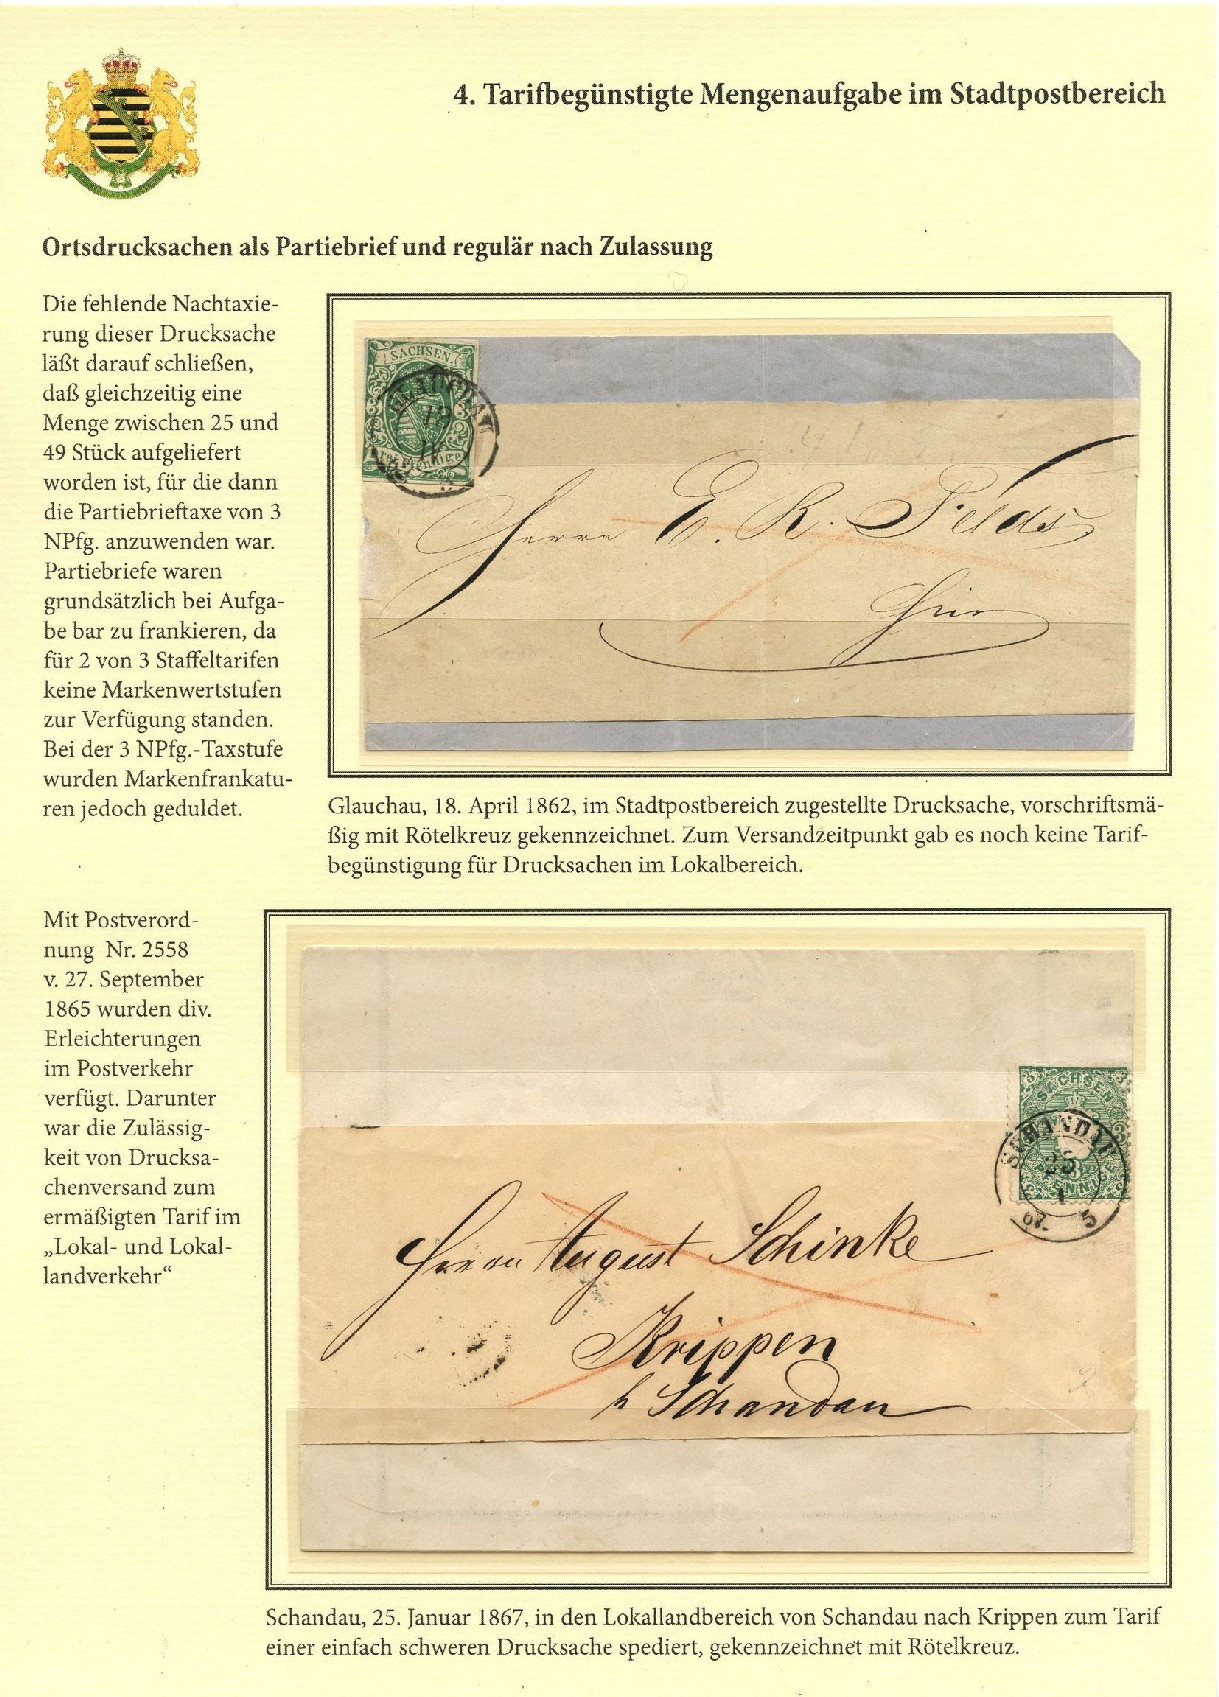 4. Tarifbegünstigte Mengenaufgabe im Stadtpostbereich
Ortsdrucksachen als Partiebrief und regulär nach Zulassung
Die fehlende Nachtaxie-
rung dieser Drucksache
läßt darauf schließen,
daß gleichzeitig eine
Menge zwischen 25 und
49 Stück aufgeliefert
worden ist, für die dann
die Partiebrieftaxe von 3
NPfg. anzuwenden war.
Partiebriefe waren
grundsätzlich bei Aufga-
be bar zu frankieren, da
für 2 von 3 Staffeltarifen
keine Markenwertstufen
zur Verfügung standen.
Bei der 3 NPfg.-Taxstufe
wurden Markenfrankatu-
ren jedoch geduldet.
SACHSEN
GLAUCHAU
18
Herrn E. R. Folds
Hier
Glauchau, 18. April 1862, im Stadtpostbereich zugestellte Drucksache, vorschriftsmä-
ßig mit Rötelkreuz gekennzeichnet. Zum Versandzeitpunkt gab es noch keine Tarif-
begünstigung für Drucksachen im Lokalbereich.
Mit Postverord-
nung Nr. 2558
v. 27. September
1865 wurden div.
Erleichterungen
im Postverkehr
verfügt. Darunter
war die Zulässig-
keit von Drucksa-
chenversand zum
ermäßigten Tarif im
„Lokal- und Lokal-
landverkehr“
SACHSEN
SCHANDAU
25
1
67. 5
Herrn August Schinke
Krippen
b Schandau
Schandau, 25. Januar 1867, in den Lokallandbereich von Schandau nach Krippen zum Tarif
einer einfach schweren Drucksache spediert, gekennzeichnet mit Rötelkreuz.